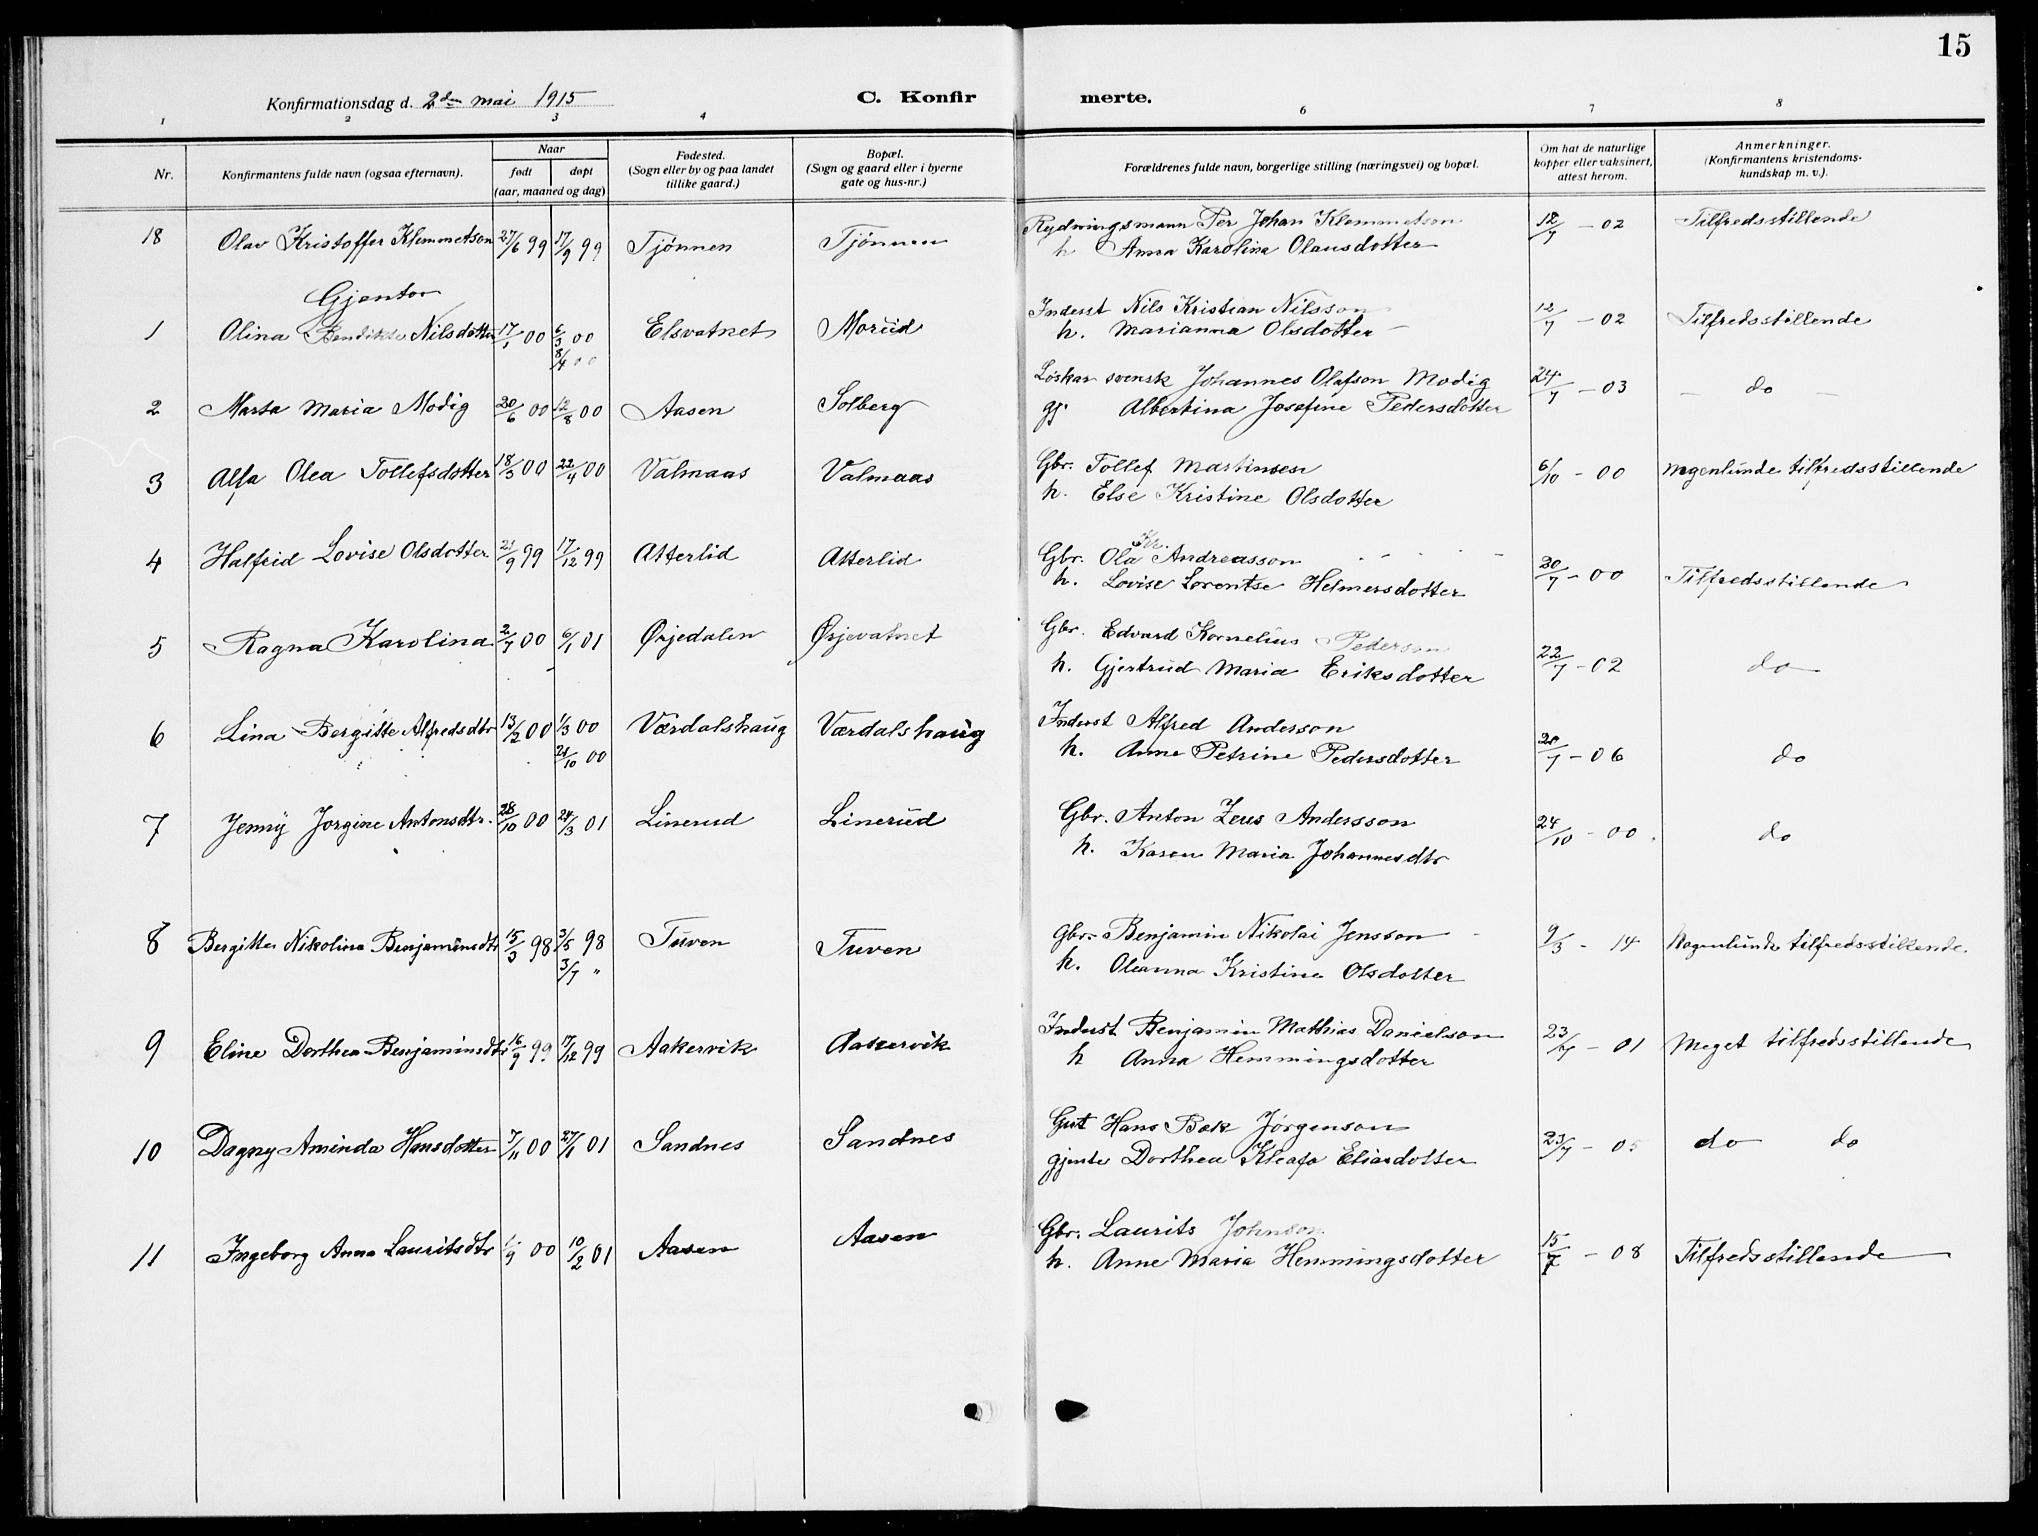 15
Konfirmationsdag d. 2den mai 1915 C. Konfir merte.
1 2 3 4 6 7 8
Nr. Konfirmantens fulde navn (ogsaa efternavn). Naar født døpt (aar, maaned og dag) Fødested. (Sogn eller by og paa landet tillike gaard.) Bopæl. (Sogn og gaard eller i byerne gate og hus-nr.) Forældrenes fulde navn, borgerlige stilling (næringsvei) og bopæl. Om hat de naturlige kopper eller vaksinert, attest herom. Anmerkninger. (Konfirmantens kristendoms-kundskap m. v.).
18 Olav Kristoffer Klemmetson 27/6 99 17/9 99 Tjønnen Tjønnen Rydningsmann Per Johan Klemmetson 12/7 – 02 Tilfredsstillende
h Anna Karolina Olausdotter
Gjentor
1 Olina Bendikte Nilsdotter 17/1 00 6/3 00 Elsvatnet Morud Inderst Nils Kristian Nilsson 12/7 – 02 Tilfredsstillende
8/4 00 h. Marianna Olsdotter –
2 Marta Maria Modig 20/6 00 12/8 00 Aasen Solberg Løskar svensk Johannes Olafson Modig 24/7 – 03 – do –
gj. Albertina Josefine Pedersdotter
3 Alfa Olea Tollefsdotter 18/3 00 22/4 00 Valmaas Valmaas Gbr. Tollef Martinsen 6/10 – 00 Nogenlunde tilfredsstillende
h. Else Kristine Olsdotter
4 Halfrid Lovise Olsdotter 21/9 99 17/12 99 Atterlid Atterlid Gbr. Ola Kr. Andreasson 20/7 – 00 Tilfredsstillende
h. Lovise Lorentse Helmersdotter
5 Ragna Karolina 2/7 00 6/1 01 Ørjedalen Ørjevatnet Gbr. Edvard Kornelius Pederson 22/7 – 02 do
h. Gjertrud Maria Eriksdotter
6 Lina Bergitte Alfredsdtr 13/2 00 1/3 00 Værdalshaug Værdalshaug Inderst Alfred Anderson
21/10 00 h. Anne Petrine Pedersdotter 20/7 – 06 do
7 Jenny Jorgine Antonsdtr. 28/10 00 24/3 01 Linerud Linerud Gbr. Anton Zeus Andersson 24/10 – 00 do
h. Karen Maria Johannesdtr
8 Bergitte Nikolina Benjaminsdtr 15/3 98 3/5 98 Tuven Tuven Gbr. Benjamin Nikolai Jensson – 9/3 – 14 Nogenlunde tilfredsstillende.
3/7 " h. Oleanna Kristine Olsdotter
9 Eline Dorthea Benjaminsdtr 16/9 99 17/12 99 Aakervik Aakervik Inderst Benjamin Mathias Danielson 23/7 – 01 Meget tilfredsstillende
h Anna Hemmingsdotter
10 Dagny Aminda Hansdotter 7/11 00 27/1 01 Sandnes Sandnes Gut Hans Bak Jørgenson 23/7 – 05 do do
gjente Dorthea Kleafa Eliasdotter
11 Ingeborg Anna Lauritsdtr 1/9 00 10/2 01 Aasen Aasen Gbr. Laurits Johnson 15/7 – 08 Tilfredsstillende
h. Anne Maria Hemmingsdotter